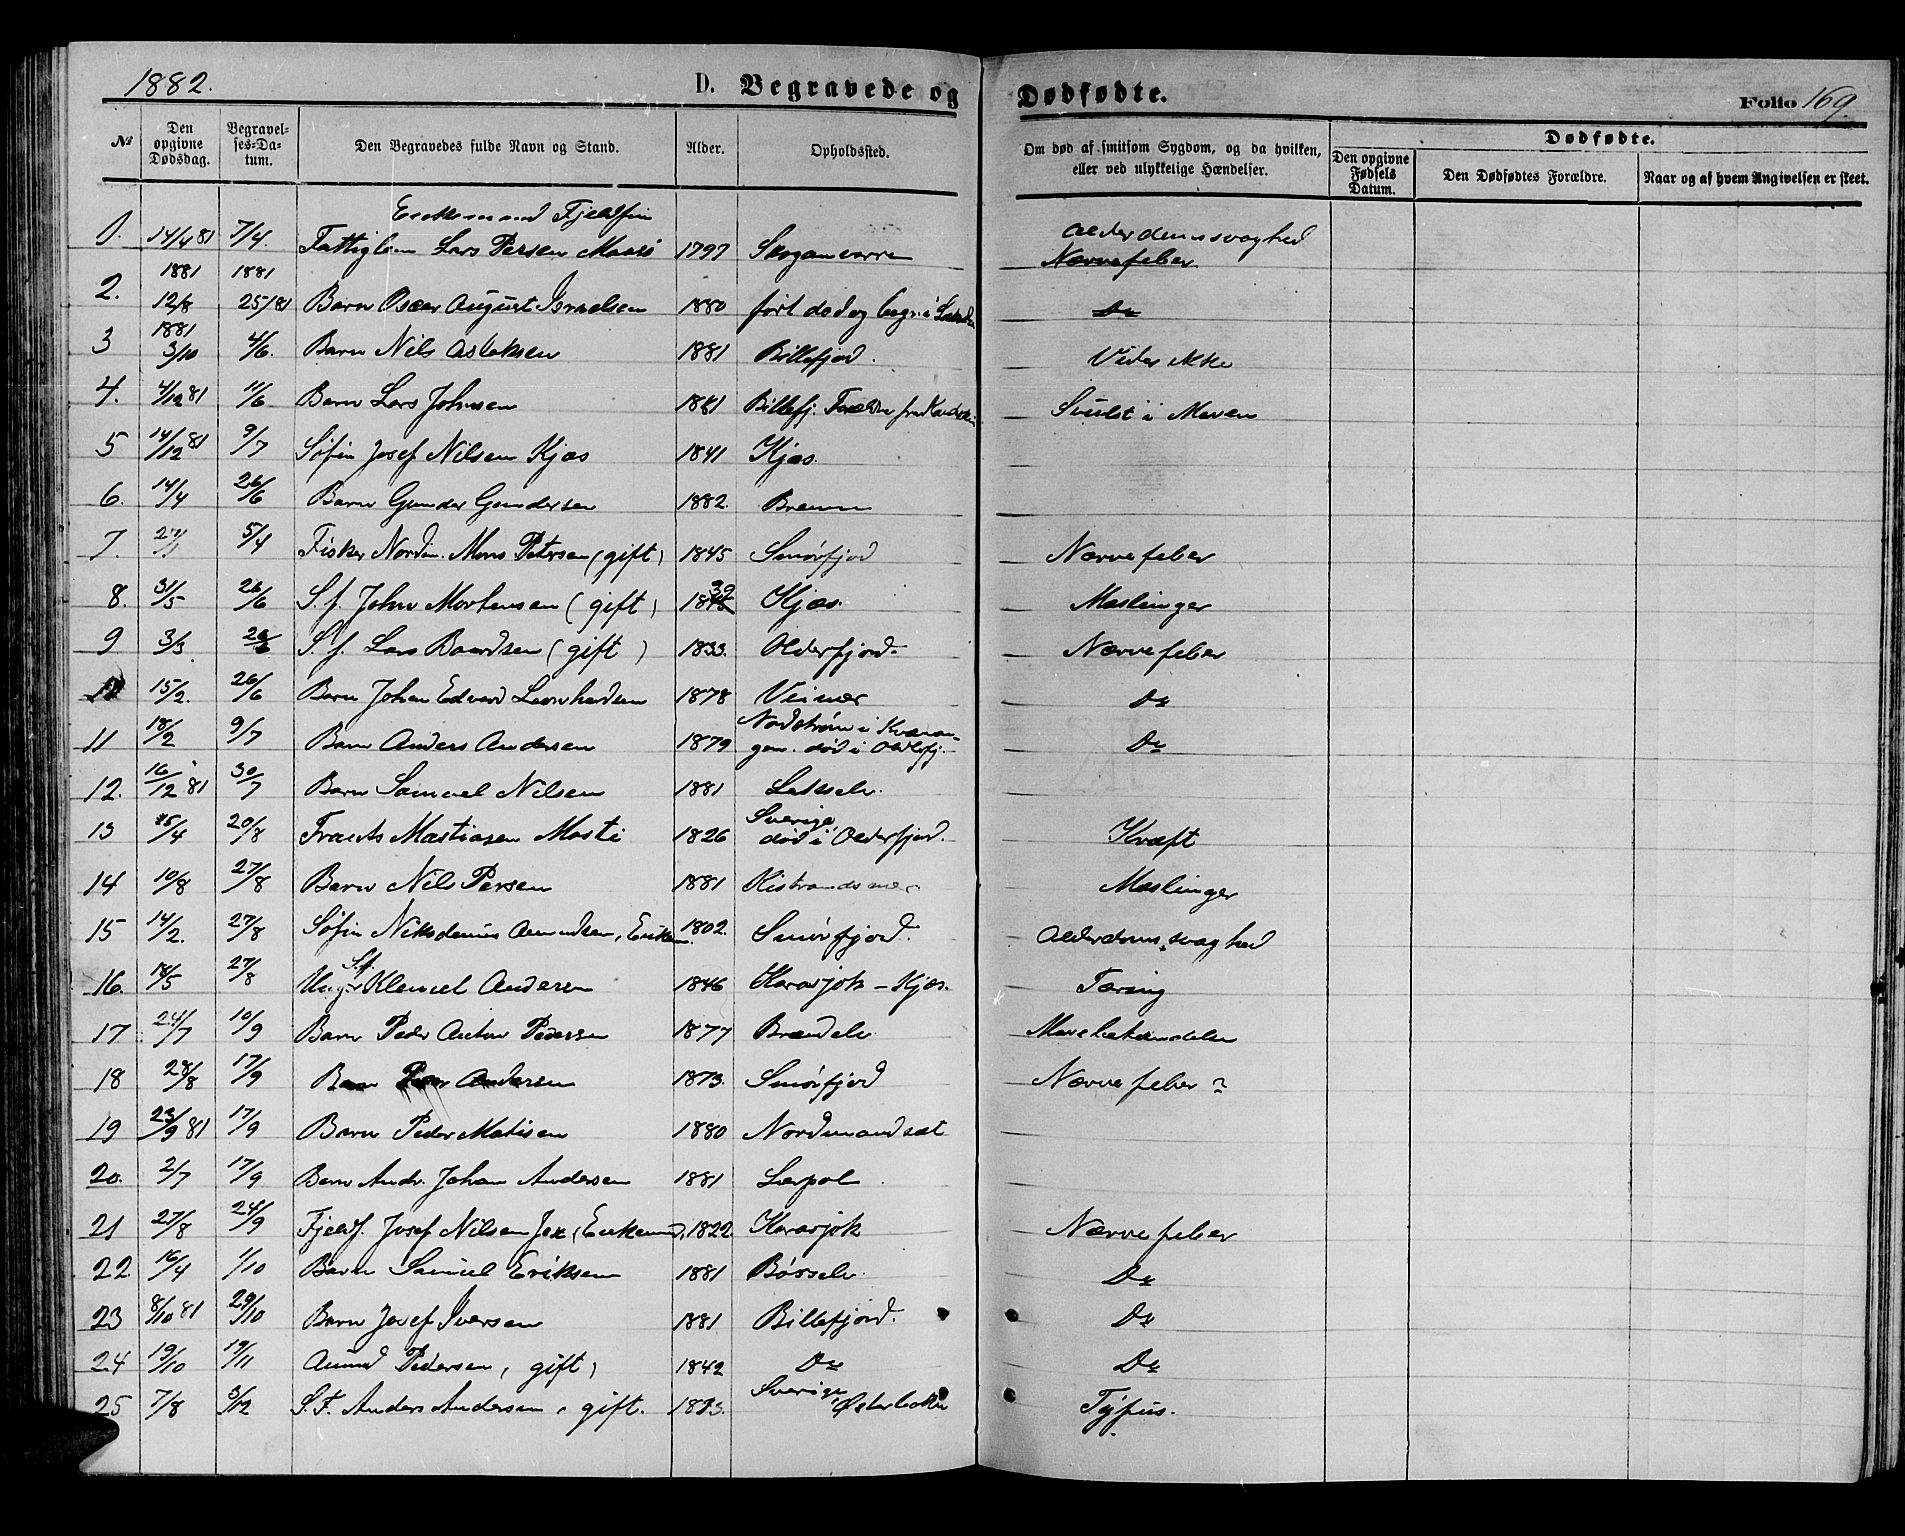 1882. D. Begravede og Dødfødte. Folio 169.
№ Den opgivne Dødsdag. Begravelses-Datum. Den Begravedes fulde Navn og Stand. Alder. Opholdssted. Om død af smitsom Sygdom, og da hvilken, eller ved ulykkelige Hændelser. Dødfødte. Den opgivne Fødsels Datum. Den Dødfødtes Forældre. Naar og af hvem Angivelsen er skeet.
Enkemand Fjeldfin
1. 14/4 81 7/4. Fattiglem Lars Persen 1797 Skoganvarre Alderdomssvaghed
Nervefeber
2. 1881 12/8 1881 25/81 Barn Oscar August Israelsen 1880 ført død og begr. i Do
3 1881 3/10 4/6. Barn Nils Aslaksen 1881 Billefjord. Vides ikke
4. 4/12 81 11/6 Barn Lars Johnsen 1881 Billefj. Svulst i Maven
5 14/12 81 9/7 Søfin Josef Nilsen Kjæs 1841 Kjæs.
6. 14/4 26/6 Barn Gunder Gundersen 1882.
7. 27/1 5/4 Fisker Nordm. Mons Petersen (gift) 1845 Smørfjord Nervefeber
8. 31/5 26/6 S. f. John Mortensen (gift) 1839 Kjæs. Meslinger
9 3/3. 26/6 S. f. Lars Baardsen (gift) 1833. Olderfjord. Nervefeber
10 15/2. 26/6 Barn Johan Edvard Leonhardsen 1878 Veines Do
11 18/2 9/7 Barn Anders Andersen 1879 Nordstrøm i Kvænangen. død i Olderfj. Do
12. 16/12 81 30/7 Barn Samuel Nilsen 1881 Lakselv.
13 25/4 20/8 Frants Mastiasen Mosti 1826 Sverige, død i Olderfjord. Kræft
14 10/8 27/8 Barn Nils Persen 1881 Kistrandsnes. Meslinger
15 14/2. 27/8 Søfin Nikodemus Amundsen, Enkem. 1802. Smørfjord. Alderdomssvaghed
16. 18/5 27/8 Ung S.f. Klemet Andersen 1846 Karasjok - Kjæs. Tæring
17 24/7 10/9 Barn Peder Anton Pedersen 1877 Brændelv
18 28/8 17/9 Barn Peder Andersen 1873. Smørfjord Nervefeber?
19 23/9 81 17/9 Barn Peder Matisen 1880 Nordmandsæt
20. 2/7 17/9 Barn Andr. Johan Andersen 1881 Leirpol.
21 27/8 24/9 Fjeldf. Josef Nilsen Jex (Enkemd. 1822. Karasjok Nervefeber
22. 16/4 1/10 Barn Samuel Eriksen 1881 Børselv. Do
23 8/10 81 29/10 Barn Josef Iversen 1881 Billefjord. Do
24 19/10 19/11 Amund Pedersen, gift) 1842 Do Do
25 7/8 3/12 S. F. Anders Andersen, gift. Sverige, Østerbotten Tyfus.